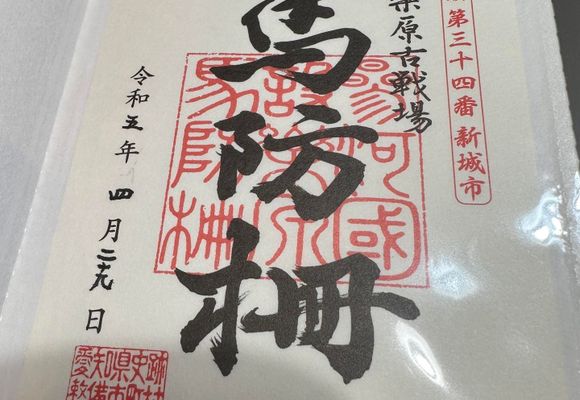 第三十四番新城市
原古戦場
馬防柵
令和五年 四月二九日
河國
馬防柵